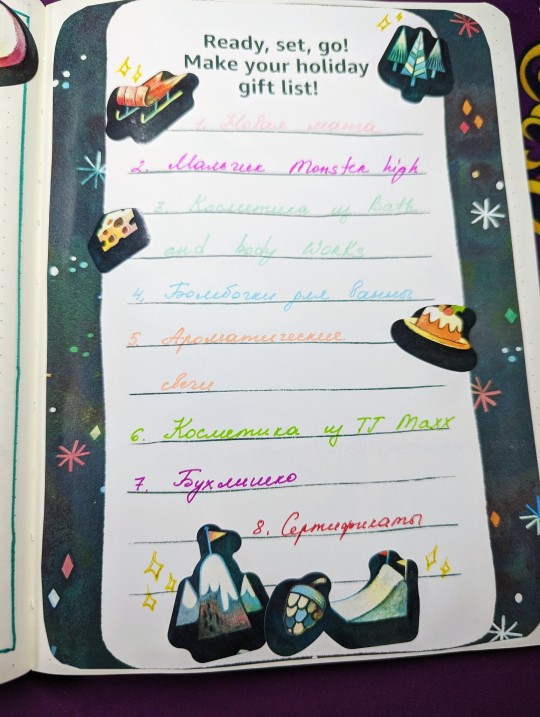 Ready, set, go!
Make your holiday
gift list!
1. Новая манга
2. Мальчик Monster high
3. Косметика из Bath
and body works
4. Бомбочки для ванны
5 Ароматические
свечи
6. Косметика из TJ Maxx
7. Бухлишко
8. Сертификаты